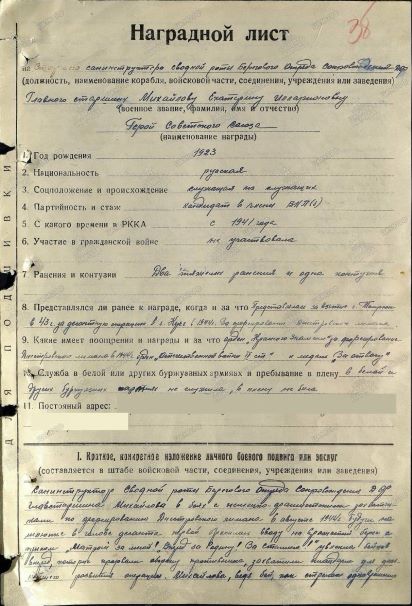 38
Наградной лист
на санинструктора сводной роты Берегового Отряда Сопровождения ДФ
(должность, наименование корабля, войсковой части, соединения, учреждения или заведения)
Главного старшину Михайлову Екатерину Илларионовну
(военное звание, фамилия, имя и отчество)
Герой Советского Союза
(наименование награды)
1. Год рождения 1923
2. Национальность русская
3. Соцположение и происхождение служащая из служащих
4. Партийность и стаж кандидат в члены ВКП(б)
5. С какого времени в РККА с 1941 года
6. Участие в гражданской войне не участвовала
7. Ранения и контузии Два тяжелых ранения и одна контузия
8. Представлялся ли ранее к награде, когда и за что
в 43 г. за десантную операцию в г. 1944 г. За форсирование Днестровского лимана
9. Какие имеет поощрения и награды и за что орден „Красного Знамени" за форсирование
Днестровского лимана в 1944 г. орден „Отечественной войны II ст" и медаль „За отвагу"
10. Служба в белой или других буржуазных армиях и пребывание в плену в белой и
других буржуазных не служила, в плену не была
11. Постоянный адрес:
ДЛЯ ПОДШИВКИ
I. Краткое, конкретное изложение личного боевого подвига или заслуг
(составляется в штабе войсковой части, соединения, учреждения или заведения)
Санинструктор Сводной роты Берегового Отряда Сопровождения ДФ
главстаршина Михайлова в боях с немецко-фашистскими захватчи-
ками по форсированию Днестровского лимана в августе 1944 г. будучи на
в голове десанта первой на вражеский берег с
криком „Матросы за мной! Вперед за Родину! За Сталина!" увлекла бойцов
вперед, которые прорвали оборону противника захватили плацдарм для даль-
развития операции. Михайлова, ведя бой, как стрелок одновременно